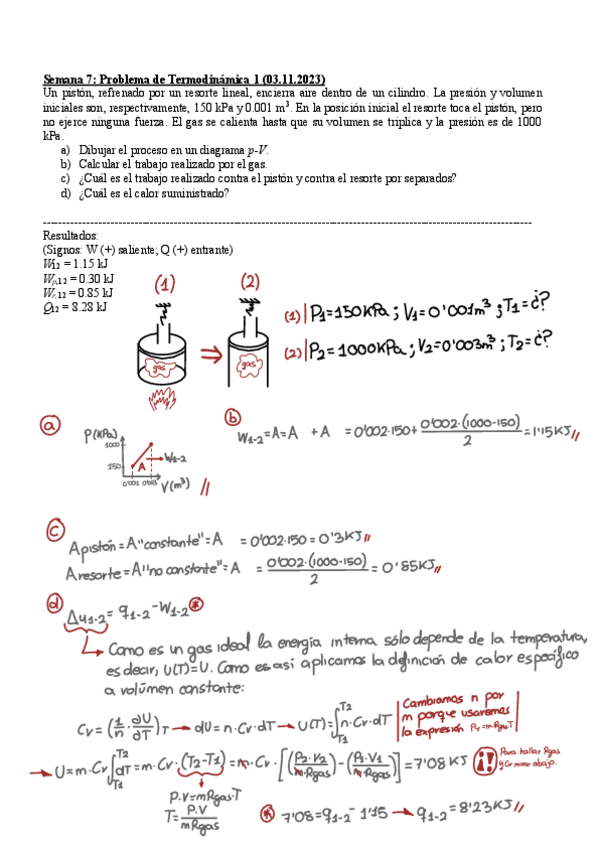 Semana 7: Problema de Termodinámica 1 (03.11.2023)
Un pistón, refrenado por un resorte lineal, encierra aire dentro de un cilindro. La presión y volumen
iniciales son, respectivamente, 150 kPa y 0.001 m³. En la posición inicial el resorte toca el pistón, pero
no ejerce ninguna fuerza. El gas se calienta hasta que su volumen se triplica y la presión es de 1000
kPa.
a) Dibujar el proceso en un diagrama p-V.
b) Calcular el trabajo realizado por el gas.
c) ¿Cuál es el trabajo realizado contra el pistón y contra el resorte por separados?
d) ¿Cuál es el calor suministrado?
Resultados:
(Signos: W (+) saliente; Q (+) entrante)
W12 = 1.15 kJ
Wp,12 = 0.30 kJ
Wr,12 = 0.85 kJ
Q12 = 8.28 kJ
(1) (2)
gas ⇒ gas
(1) | P1=150KPa ; V1=0'001m³ ; T1=¿?
(2) | P2=1000KPa ; V2=0'003m³ ; T2=¿?
a
P(KPa)
1000
150
A
W1-2
0'001 0'003 V(m³) //
b W1-2=A=A + A = 0'002·150+ 0'002·(1000-150)/2 = 1'15KJ //
c
Apistón=A"constante"=A = 0'002·150=0'3KJ //
Aresorte=A"no constante"=A = 0'002·(1000-150)/2 = 0'85KJ //
d Δu1-2= q1-2-W1-2 *
Como es un gas ideal la energía interna sólo depende de la temperatura,
es decir, U(T)=U. Como es así aplicamos la definición de calor específico
a volúmen constante:
Cv=(1/n·∂U/∂T)T → dU=n·Cv·dT → U(T)=∫T1T2 n·Cv·dT
Cambiamos n por
m porque usaremos
la expresión P.V=m·Rgas·T
→ U=m·Cv ∫T1T2 dT=m·Cv·(T2-T1)=m·Cv·[(P2·V2/m·Rgas)-(P1·V1/m·Rgas)]=7'08 KJ
¡! Para hallar Rgas
y Cv mirar abajo.
P.V=mRgas·T
T=P.V/mRgas
* 7'08=q1-2- 1'15 → q1-2=8'23KJ //